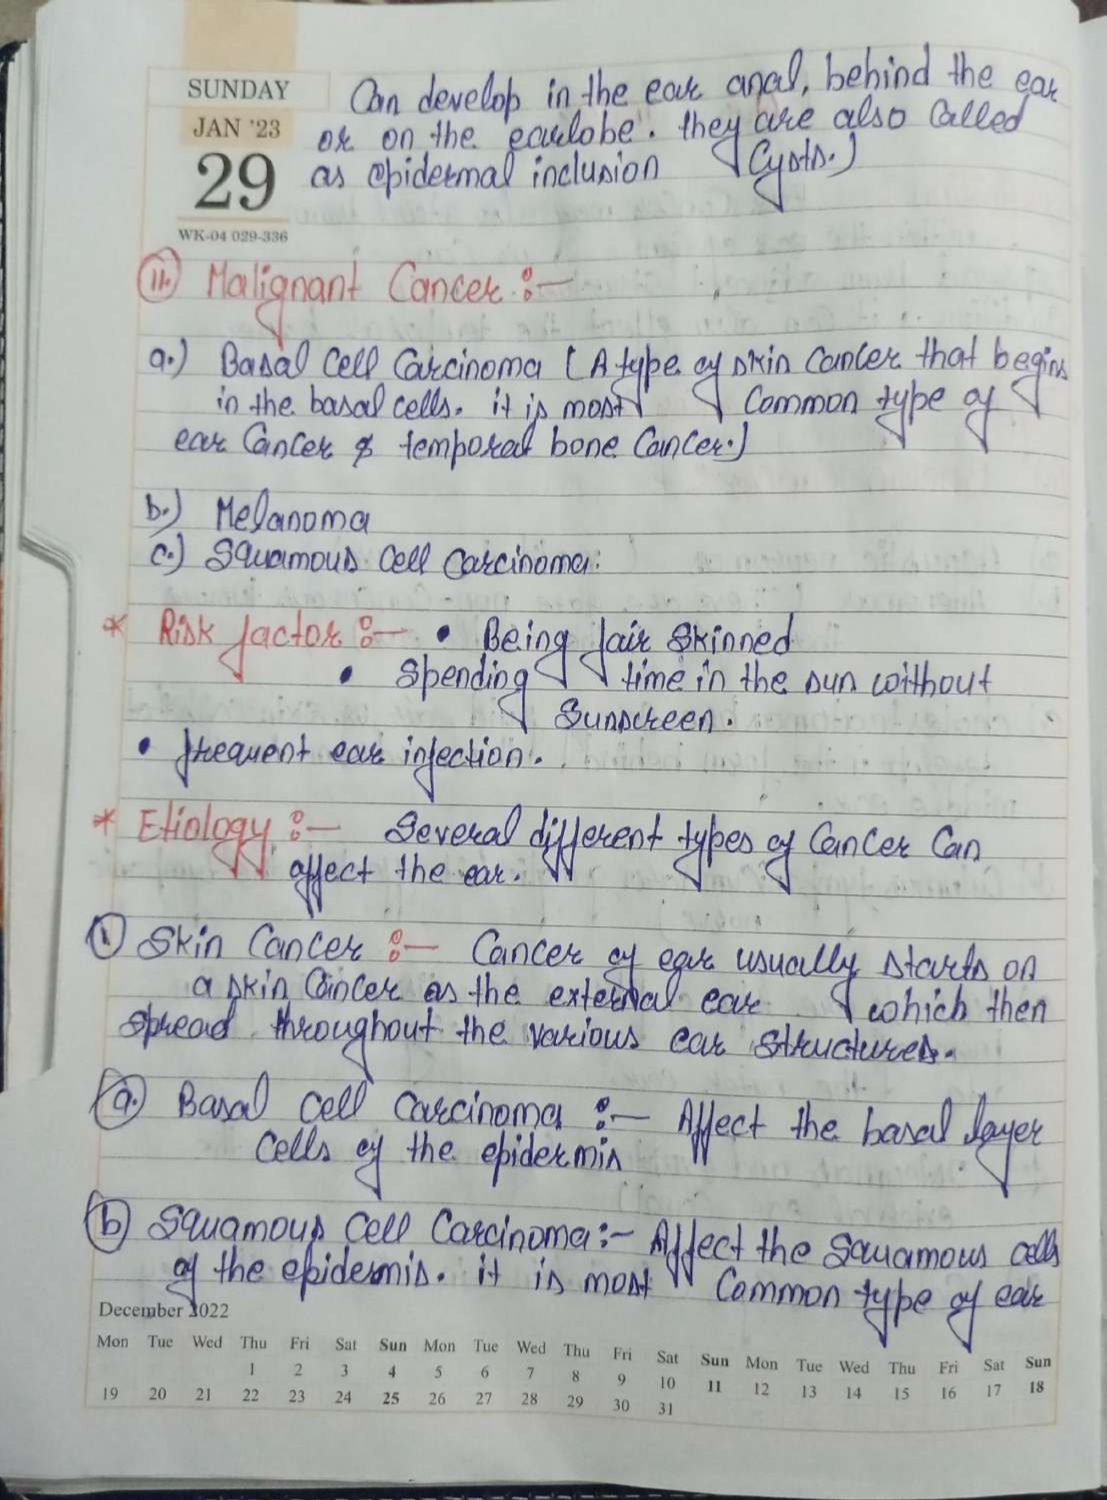 SUNDAY
JAN '23
29
WK-04 029-336
Can develop in the ear anal, behind the ear
or on the earlobe. they are also Called
as epidermal inclusion Cysts.)
11. Malignant Cancer :-
a.) Basal Cell Carcinoma (A type of skin Cancer that begins
in the basal cells. it is most Common type of
ear Cancer & temporal bone Cancer.)
b.) Melanoma
c.) Squamous Cell Carcinoma:
* Risk factor :- • Being fair skinned
• Spending time in the sun without
Sunscreen.
• frequent ear infection.
* Etiology :- Several different types of Cancer Can
affect the ear.
1 Skin Cancer :- Cancer of ear usually starts on
a skin Cancer as the external ear which then
spread throughout the various ear structures.
a. Basal Cell Carcinoma :- Affect the basal layer
Cells of the epidermis
b) Squamous Cell Carcinoma:- Affect the Squamous cells
of the epidermis. it is most Common type of ear
December 2022
Mon Tue Wed Thu Fri Sat Sun Mon Tue Wed Thu Fri Sat Sun Mon Tue Wed Thu Fri Sat Sun
1 2 3 4 5 6 7 8 9 10 11 12 13 14 15 16 17 18
19 20 21 22 23 24 25 26 27 28 29 30 31